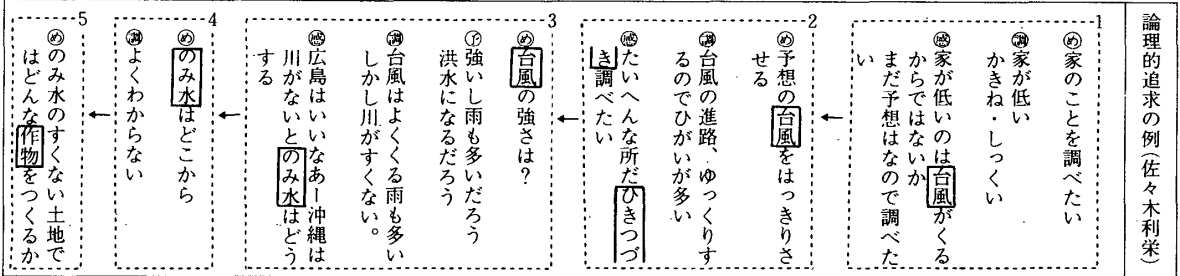 論理的追求の例(佐々木利栄)
1
㋱家のことを調べたい
㋩家が低い
かきね・しっくい
㋕家が低いのは台風がくる
からではないか
まだ予想はなので調べた
い
2
め予想の台風をはっきりさ
せる
調台風の進路、ゆっくりす
るのでひがいが多い
感たいへんな所だひきつづ
き調べたい
3
め台風の強さは?
予強いし雨も多いだろう
洪水になるだろう
調台風はよくくる雨も多い
しかし川がすくない。
感広島はいいなあー沖縄は
川がないとのみ水はどう
する
4
めのみ水はどこから
調よくわからない
5
めのみ水のすくない土地で
はどんな作物をつくるか